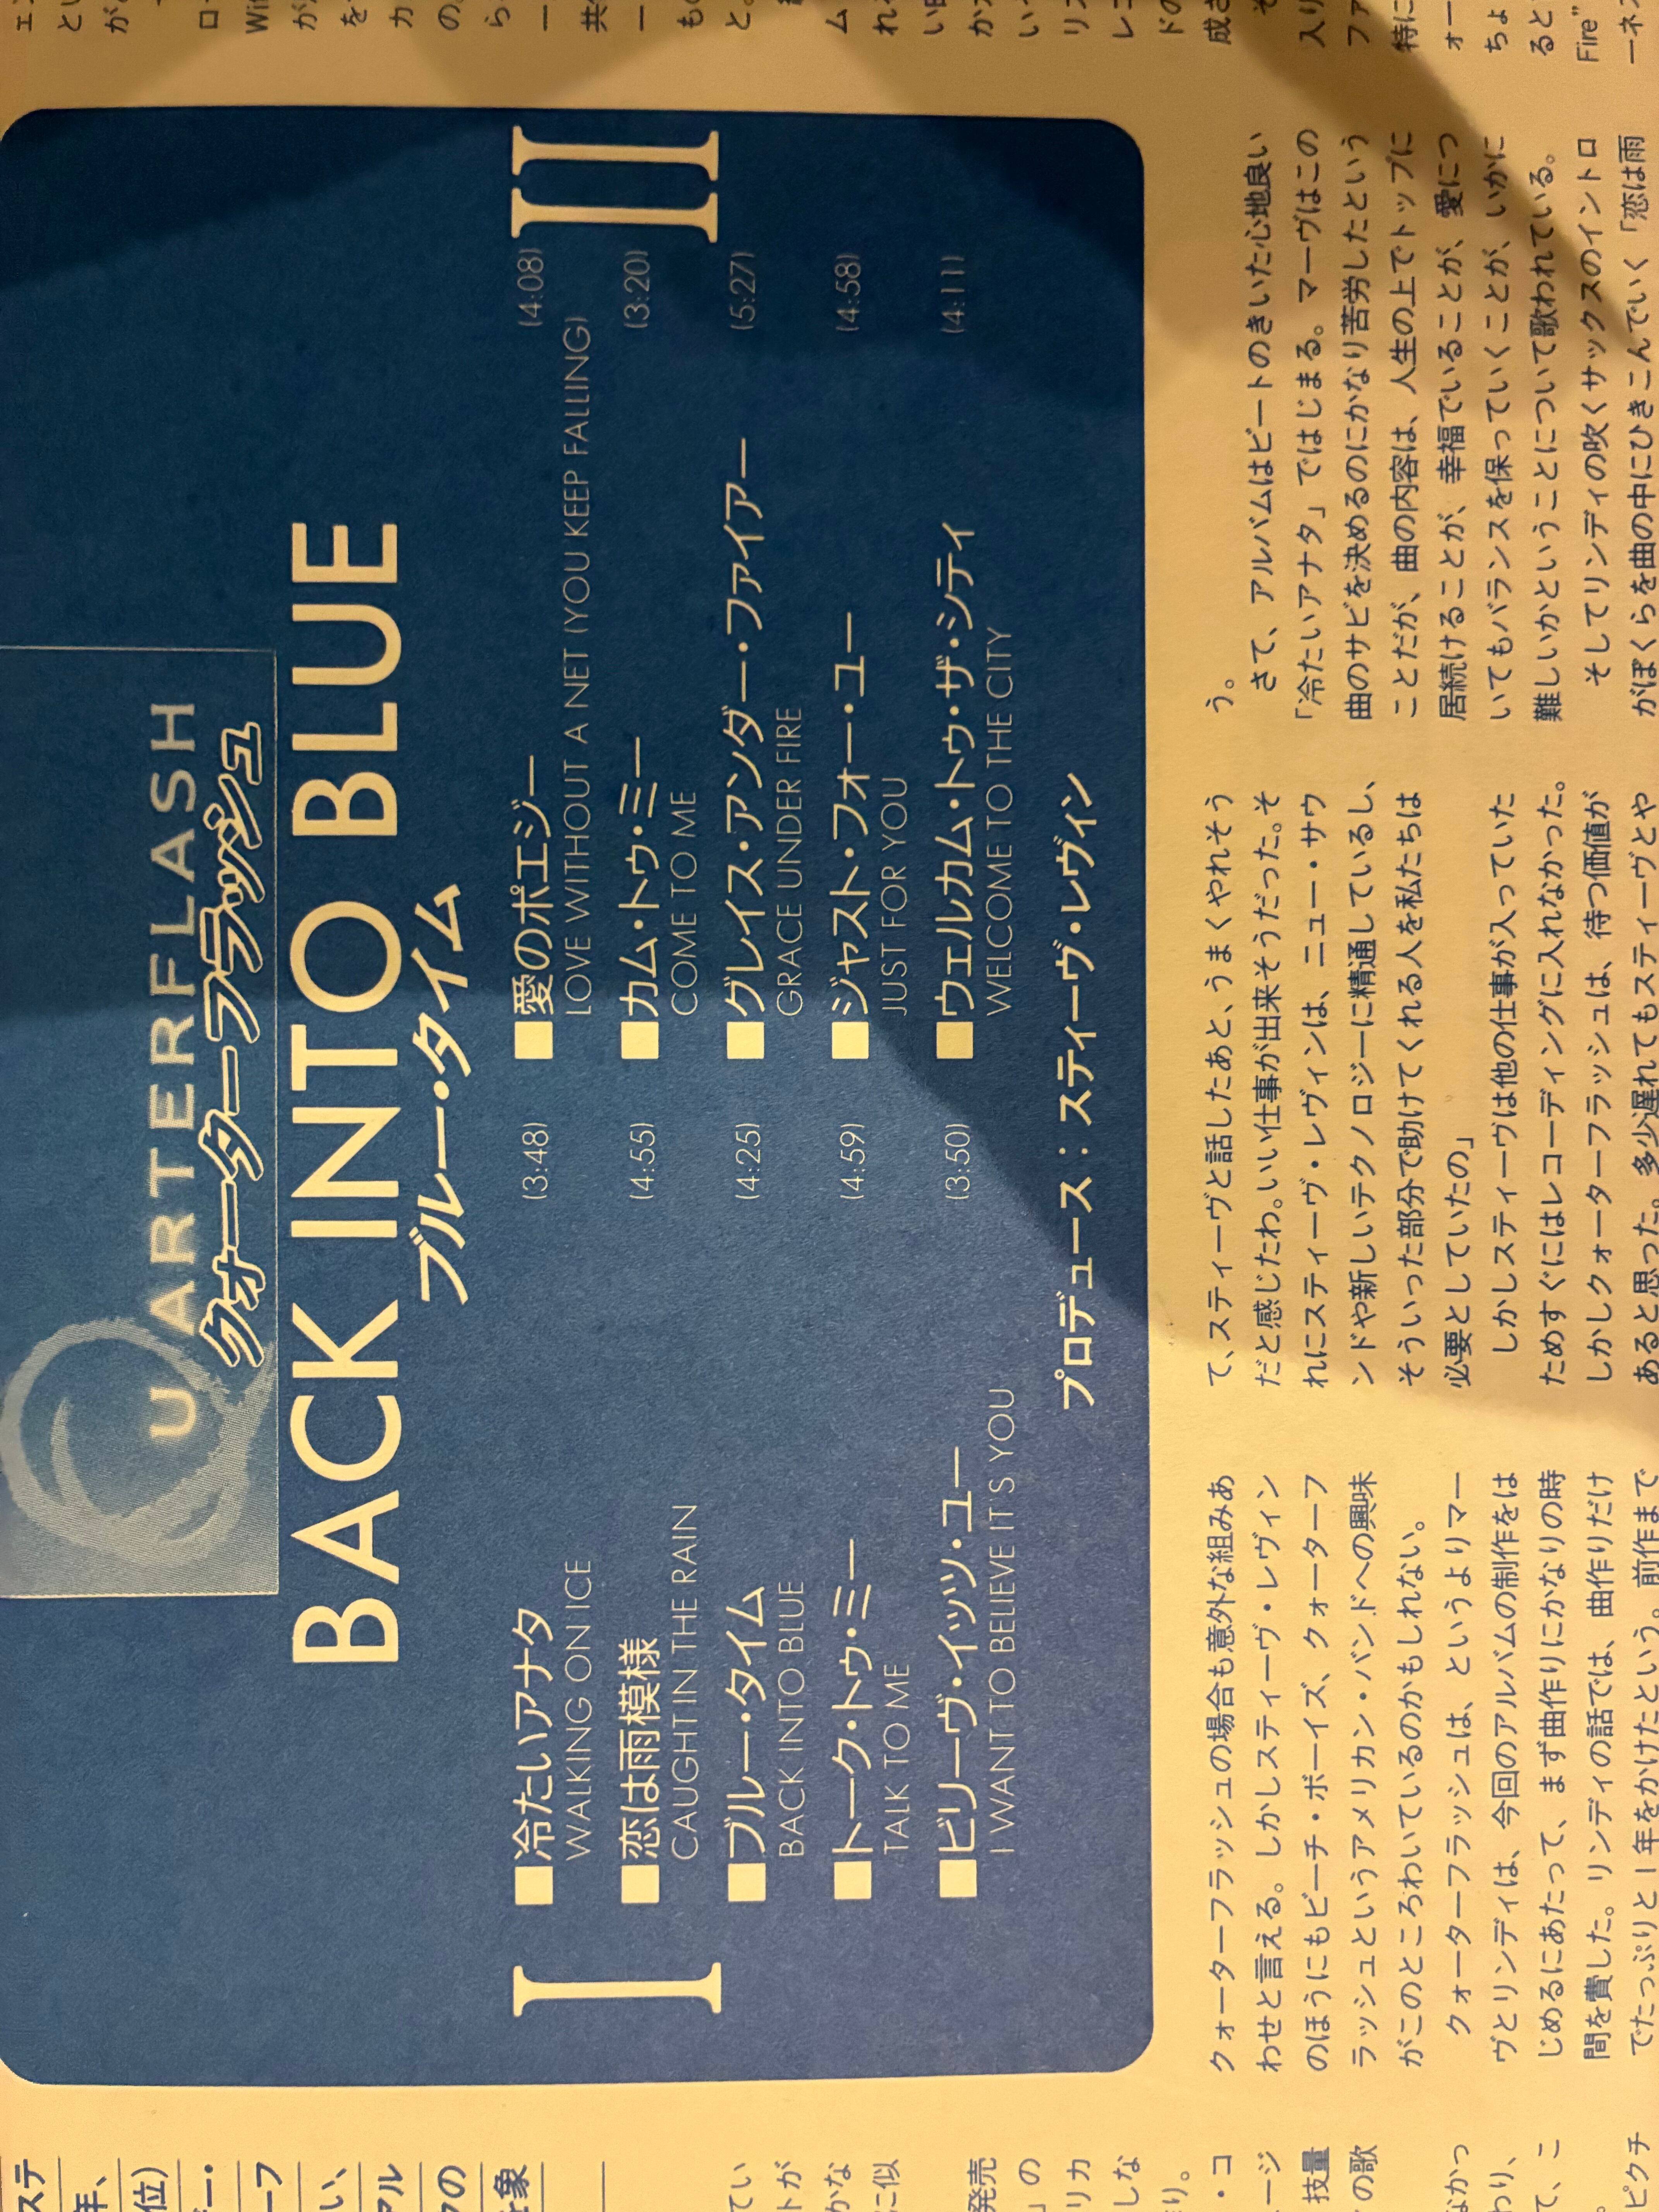 ステ
年、
位)
ーフ
い、
アル
の
象
てい
トが
かな
に似
発売
」の
リカ
しな
・コ
ージ
技量
の歌
なかっ
わり、
て、こ
ピクチ
QUARTERFLASH
クォーターフラッシュ
BACK INTO BLUE
ブルー・タイム
I
■冷たいアナタ (3:48)
WALKING ON ICE
■恋は雨模様 (4:55)
CAUGHT IN THE RAIN
■ブルー・タイム (4:25)
BACK INTO BLUE
■トーク・トゥ・ミー (4:59)
TALK TO ME
■ビリーヴ・イッツ・ユー (3:50)
I WANT TO BELIEVE IT'S YOU
II
■愛のポエジー (4:08)
LOVE WITHOUT A NET (YOU KEEP FALLING)
■カム・トゥ・ミー (3:20)
COME TO ME
■グレイス・アンダー・ファイアー (5:27)
GRACE UNDER FIRE
■ジャスト・フォー・ユー (4:58)
JUST FOR YOU
■ウェルカム・トゥ・ザ・シティ (4:11)
WELCOME TO THE CITY
プロデュース：スティーヴ・レヴィン
クォーターフラッシュの場合も意外な組みあ
わせと言える。しかしスティーヴ・レヴィン
のほうにもビーチ・ボーイズ、クォーターフ
ラッシュというアメリカン・バンドへの興味
がこのところわいているのかもしれない。
クォーターフラッシュは、というよりマー
ヴとリンディは、今回のアルバムの制作をは
じめるにあたって、まず曲作りにかなりの時
間を費した。リンディの話では、曲作りだけ
でたっぷりと1年をかけたという。前作まで
て、スティーヴと話したあと、うまくやれそう
だと感じたわ。いい仕事が出来そうだった。そ
れにスティーヴ・レヴィンは、ニュー・サウ
ンドや新しいテクノロジーに精通しているし、
そういった部分で助けてくれる人を私たちは
必要としていたの」
しかしスティーヴは他の仕事が入っていた
ためすぐにはレコーディングに入れなかった。
しかしクォーターフラッシュは、待つ価値が
あると思った。多少遅れてもスティーヴとや
う。
さて、アルバムはビートのきいた心地良い
「冷たいアナタ」ではじまる。マーヴはこの
曲のサビを決めるのにかなり苦労したという
ことだが、曲の内容は、人生の上でトップに
居続けることが、幸福でいることが、愛につ
いてもバランスを保っていくことが、いかに
難しいかということについて歌われている。
そしてリンディの吹くサックスのイントロ
がぼくらを曲の中にひきこんでいく「恋は雨
ェン
とい
ロー
カ
の。
ら
共
と。
ム
れ
い
リ
レコ
ドの
成さ
そ
入り
ファ
特に
ォー
ちょ
ると
Fire”
ーネ